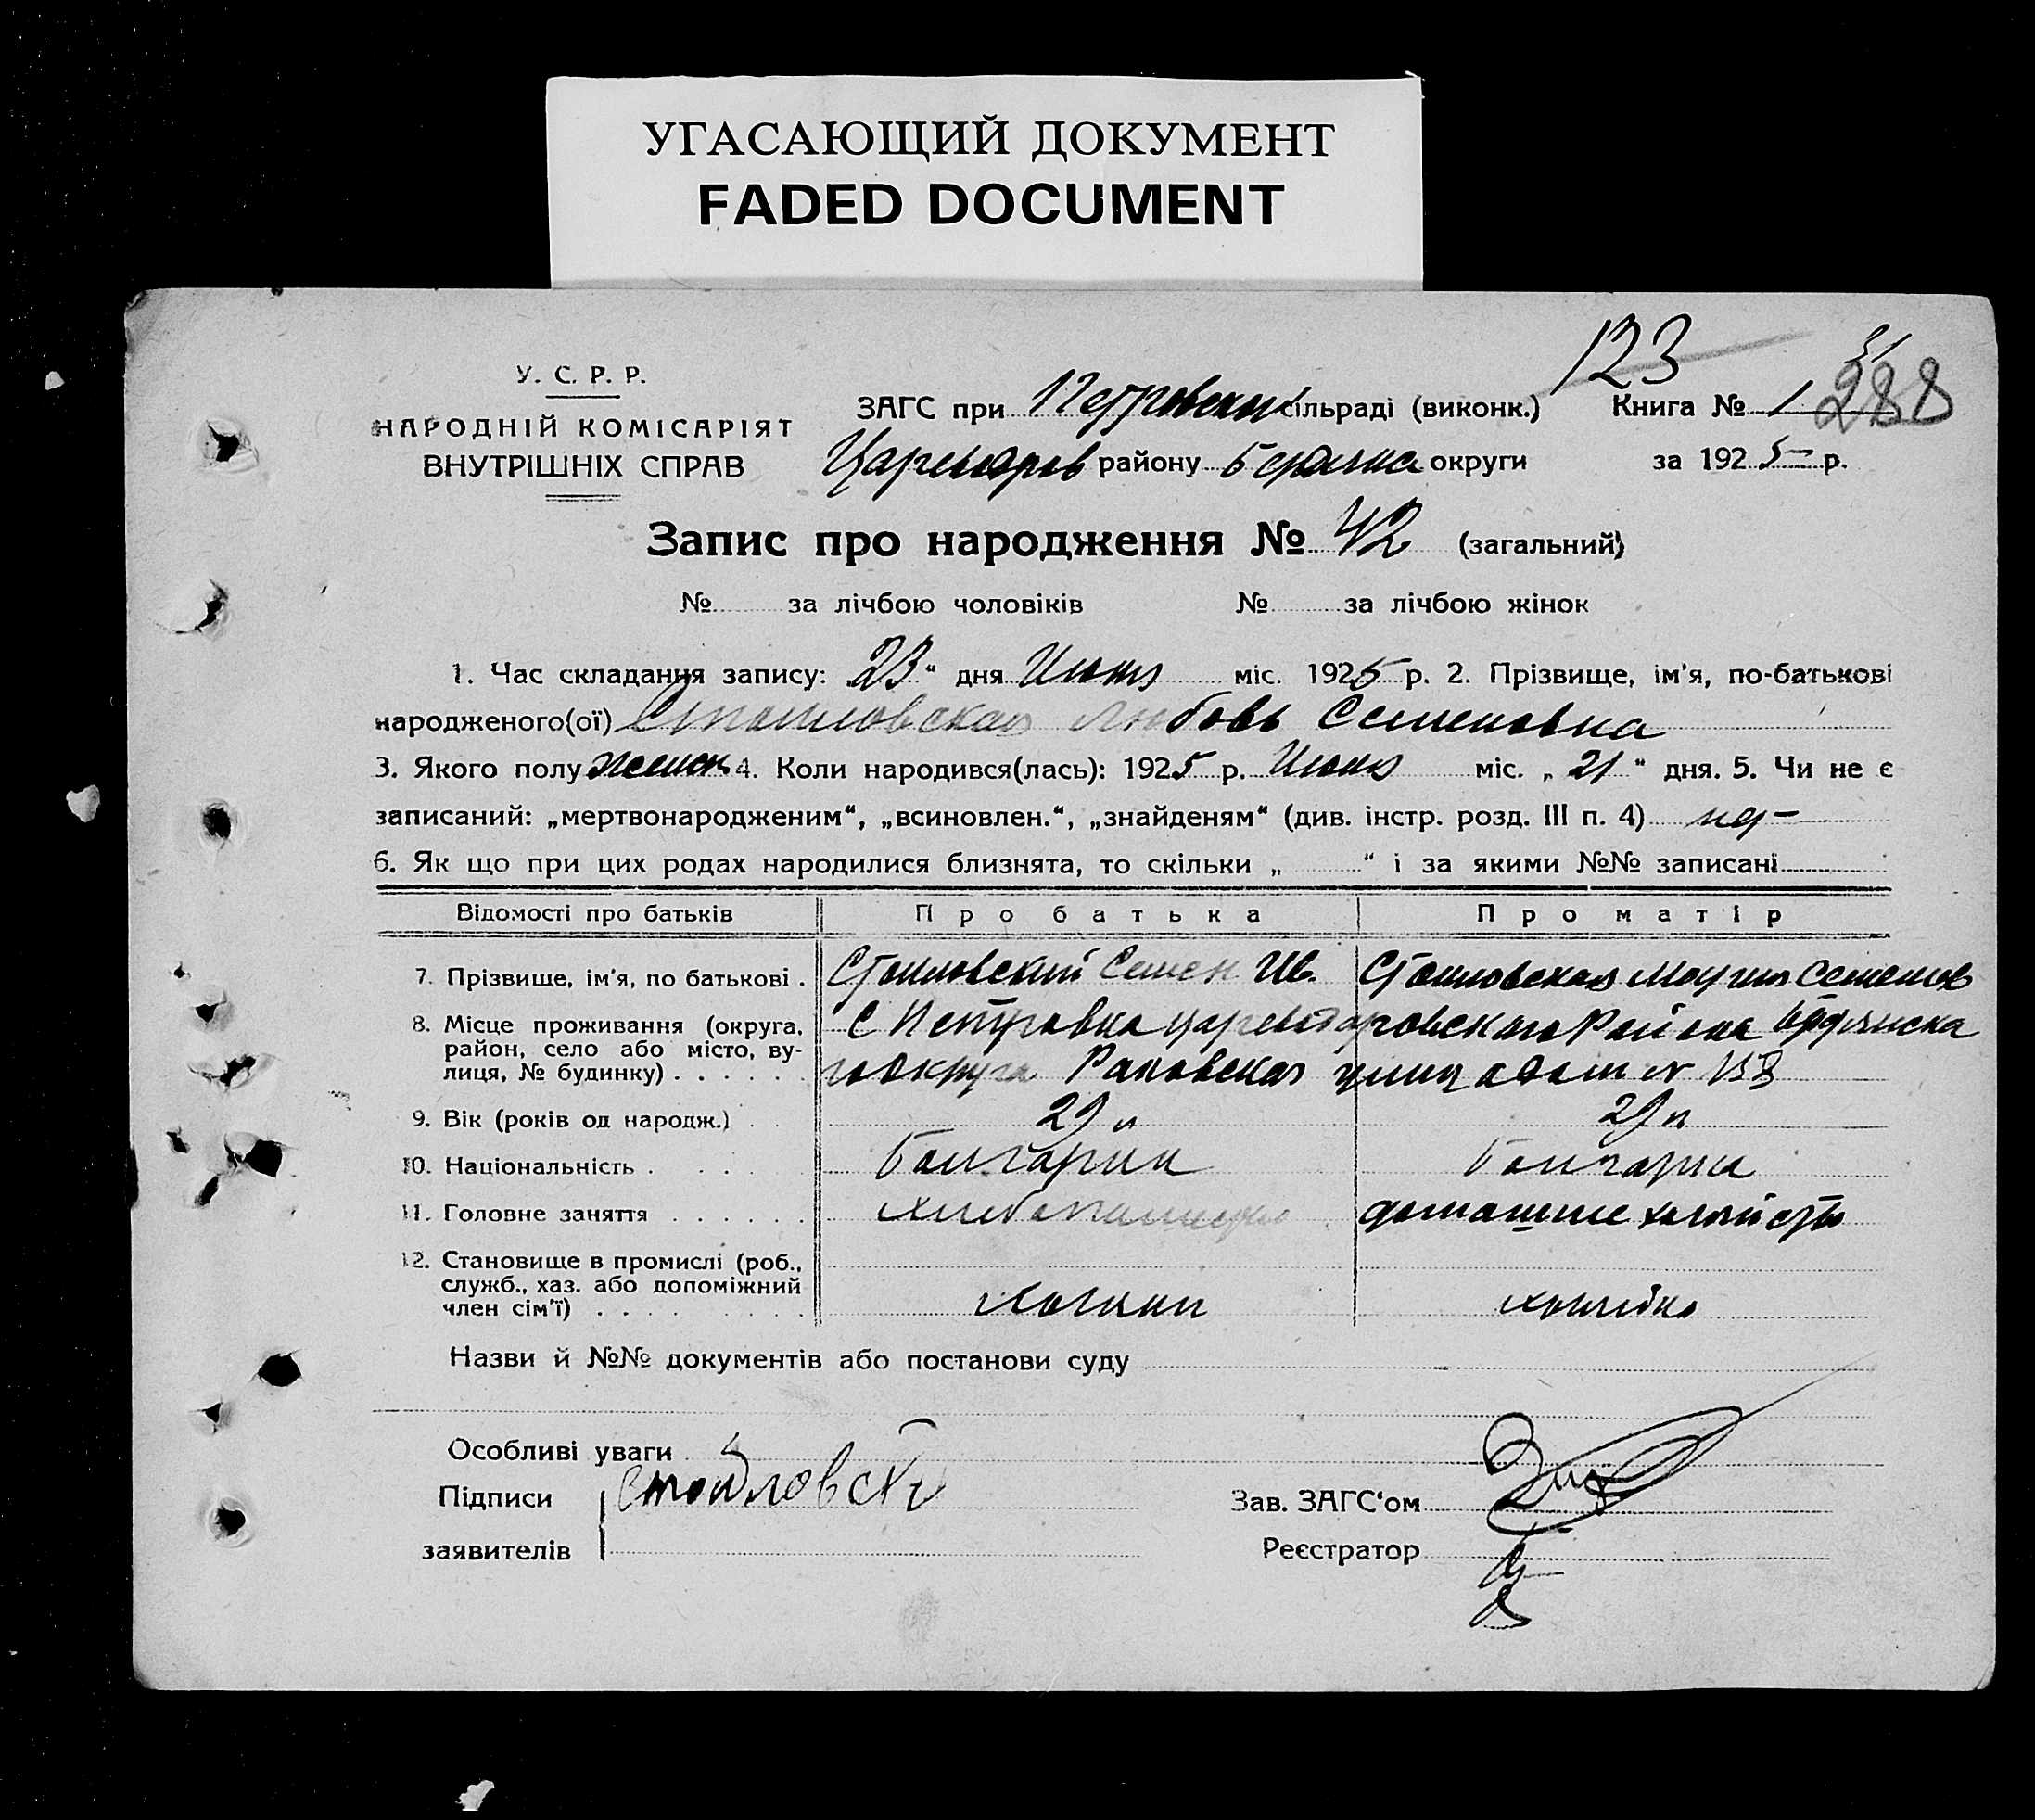 УГАСАЮЩИЙ ДОКУМЕНТ
FADED DOCUMENT
123
31
288
У. С. Р. Р.
НАРОДНІЙ КОМІСАРІЯТ
ВНУТРІШНІХ СПРАВ
ЗАГС при Петровской сільраді (виконк.) Книга № 1
Царедаров району Бердянска округи за 1925 р.
Запис про народження № 42 (загальний)
№ за лічбою чоловіків № за лічбою жінок
1. Час складання запису: „23“ дня Июня міс. 1925 р. 2. Прізвище, ім'я, по-батькові
народженого(ої) Стоиловская Любовь Семеновна
3. Якого полу женск 4. Коли народився(лась): 1925 р. Июня міс. „21“ дня. 5. Чи не є
записаний: „мертвонародженим“, „всиновлен.“, „знайденям“ (див. інстр. розд. III п. 4)
6. Як що при цих родах народилися близнята, то скільки „ “ і за якими №№ записані
Відомості про батьків Про батька Про матір
7. Прізвище, ім'я, по батькові . Стоиловский Семен Ив. Стоиловская Мария Семенов
8. Місце проживання (округа, С Петровка Царедаровского Района Бердянска
район, село або місто, ву-
лиця, № будинку) . . . . . . го округа Раковская улица дом №
9. Вік (років од народж.) . . 29 л 29 л
10. Національність . . . . . Болгарин Болгарка
11. Головне заняття . . . . . . хлебопашество домашнее хозяйство
12. Становище в промислі (роб.,
служб., хаз. або допоміжний
член сім'ї) . . . . . . хозяин хозяйка
Назви й №№ документів або постанови суду
Особливі уваги
Підписи Стойловскі Зав. ЗАГС'ом
заявителів Реєстратор